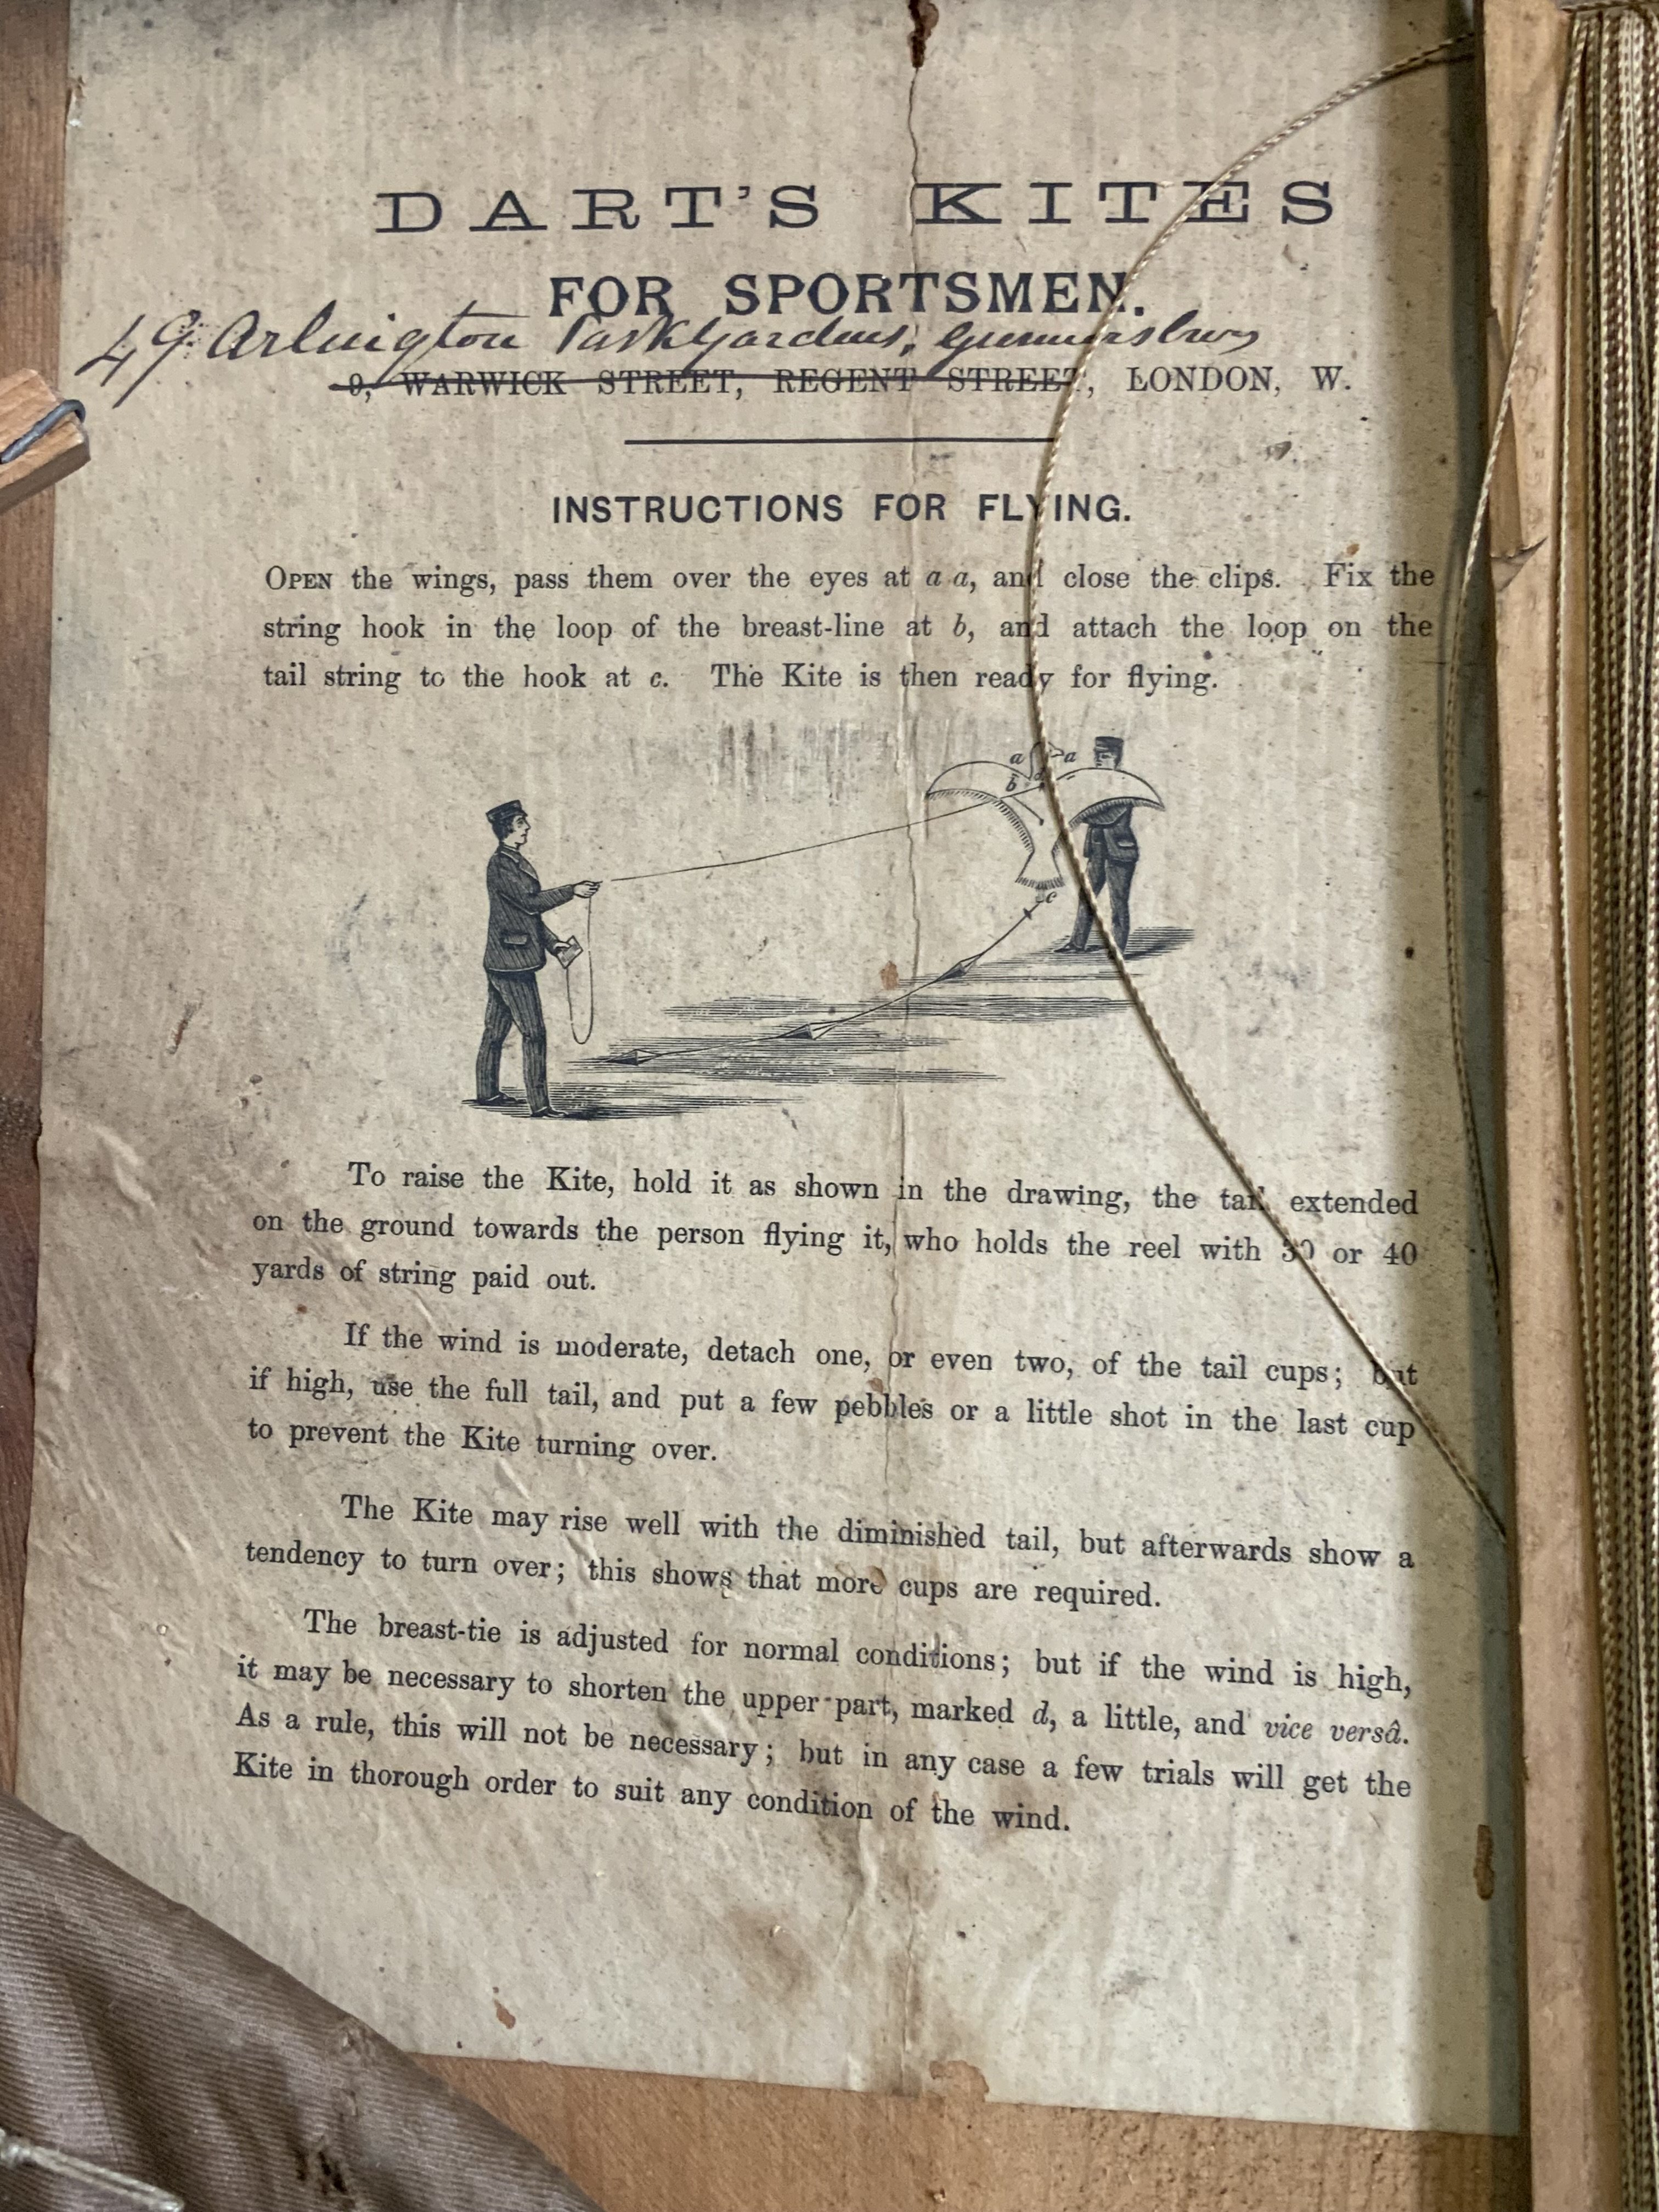 DART'S KITES
FOR SPORTSMEN.
49 Arlington Park Gardens, Gunnersbury
9, WARWICK STREET, REGENT STREET, LONDON, W.
INSTRUCTIONS FOR FLYING.
OPEN the wings, pass them over the eyes at a a, and close the clips. Fix the
string hook in the loop of the breast-line at b, and attach the loop on the
tail string to the hook at c. The Kite is then ready for flying.
a a
b d
c
To raise the Kite, hold it as shown in the drawing, the tail extended
on the ground towards the person flying it, who holds the reel with 30 or 40
yards of string paid out.
If the wind is moderate, detach one, or even two, of the tail cups; but
if high, use the full tail, and put a few pebbles or a little shot in the last cup
to prevent the Kite turning over.
The Kite may rise well with the diminished tail, but afterwards show a
tendency to turn over; this shows that more cups are required.
The breast-tie is adjusted for normal conditions; but if the wind is high,
it may be necessary to shorten the upper part, marked d, a little, and vice versâ.
As a rule, this will not be necessary; but in any case a few trials will get the
Kite in thorough order to suit any condition of the wind.